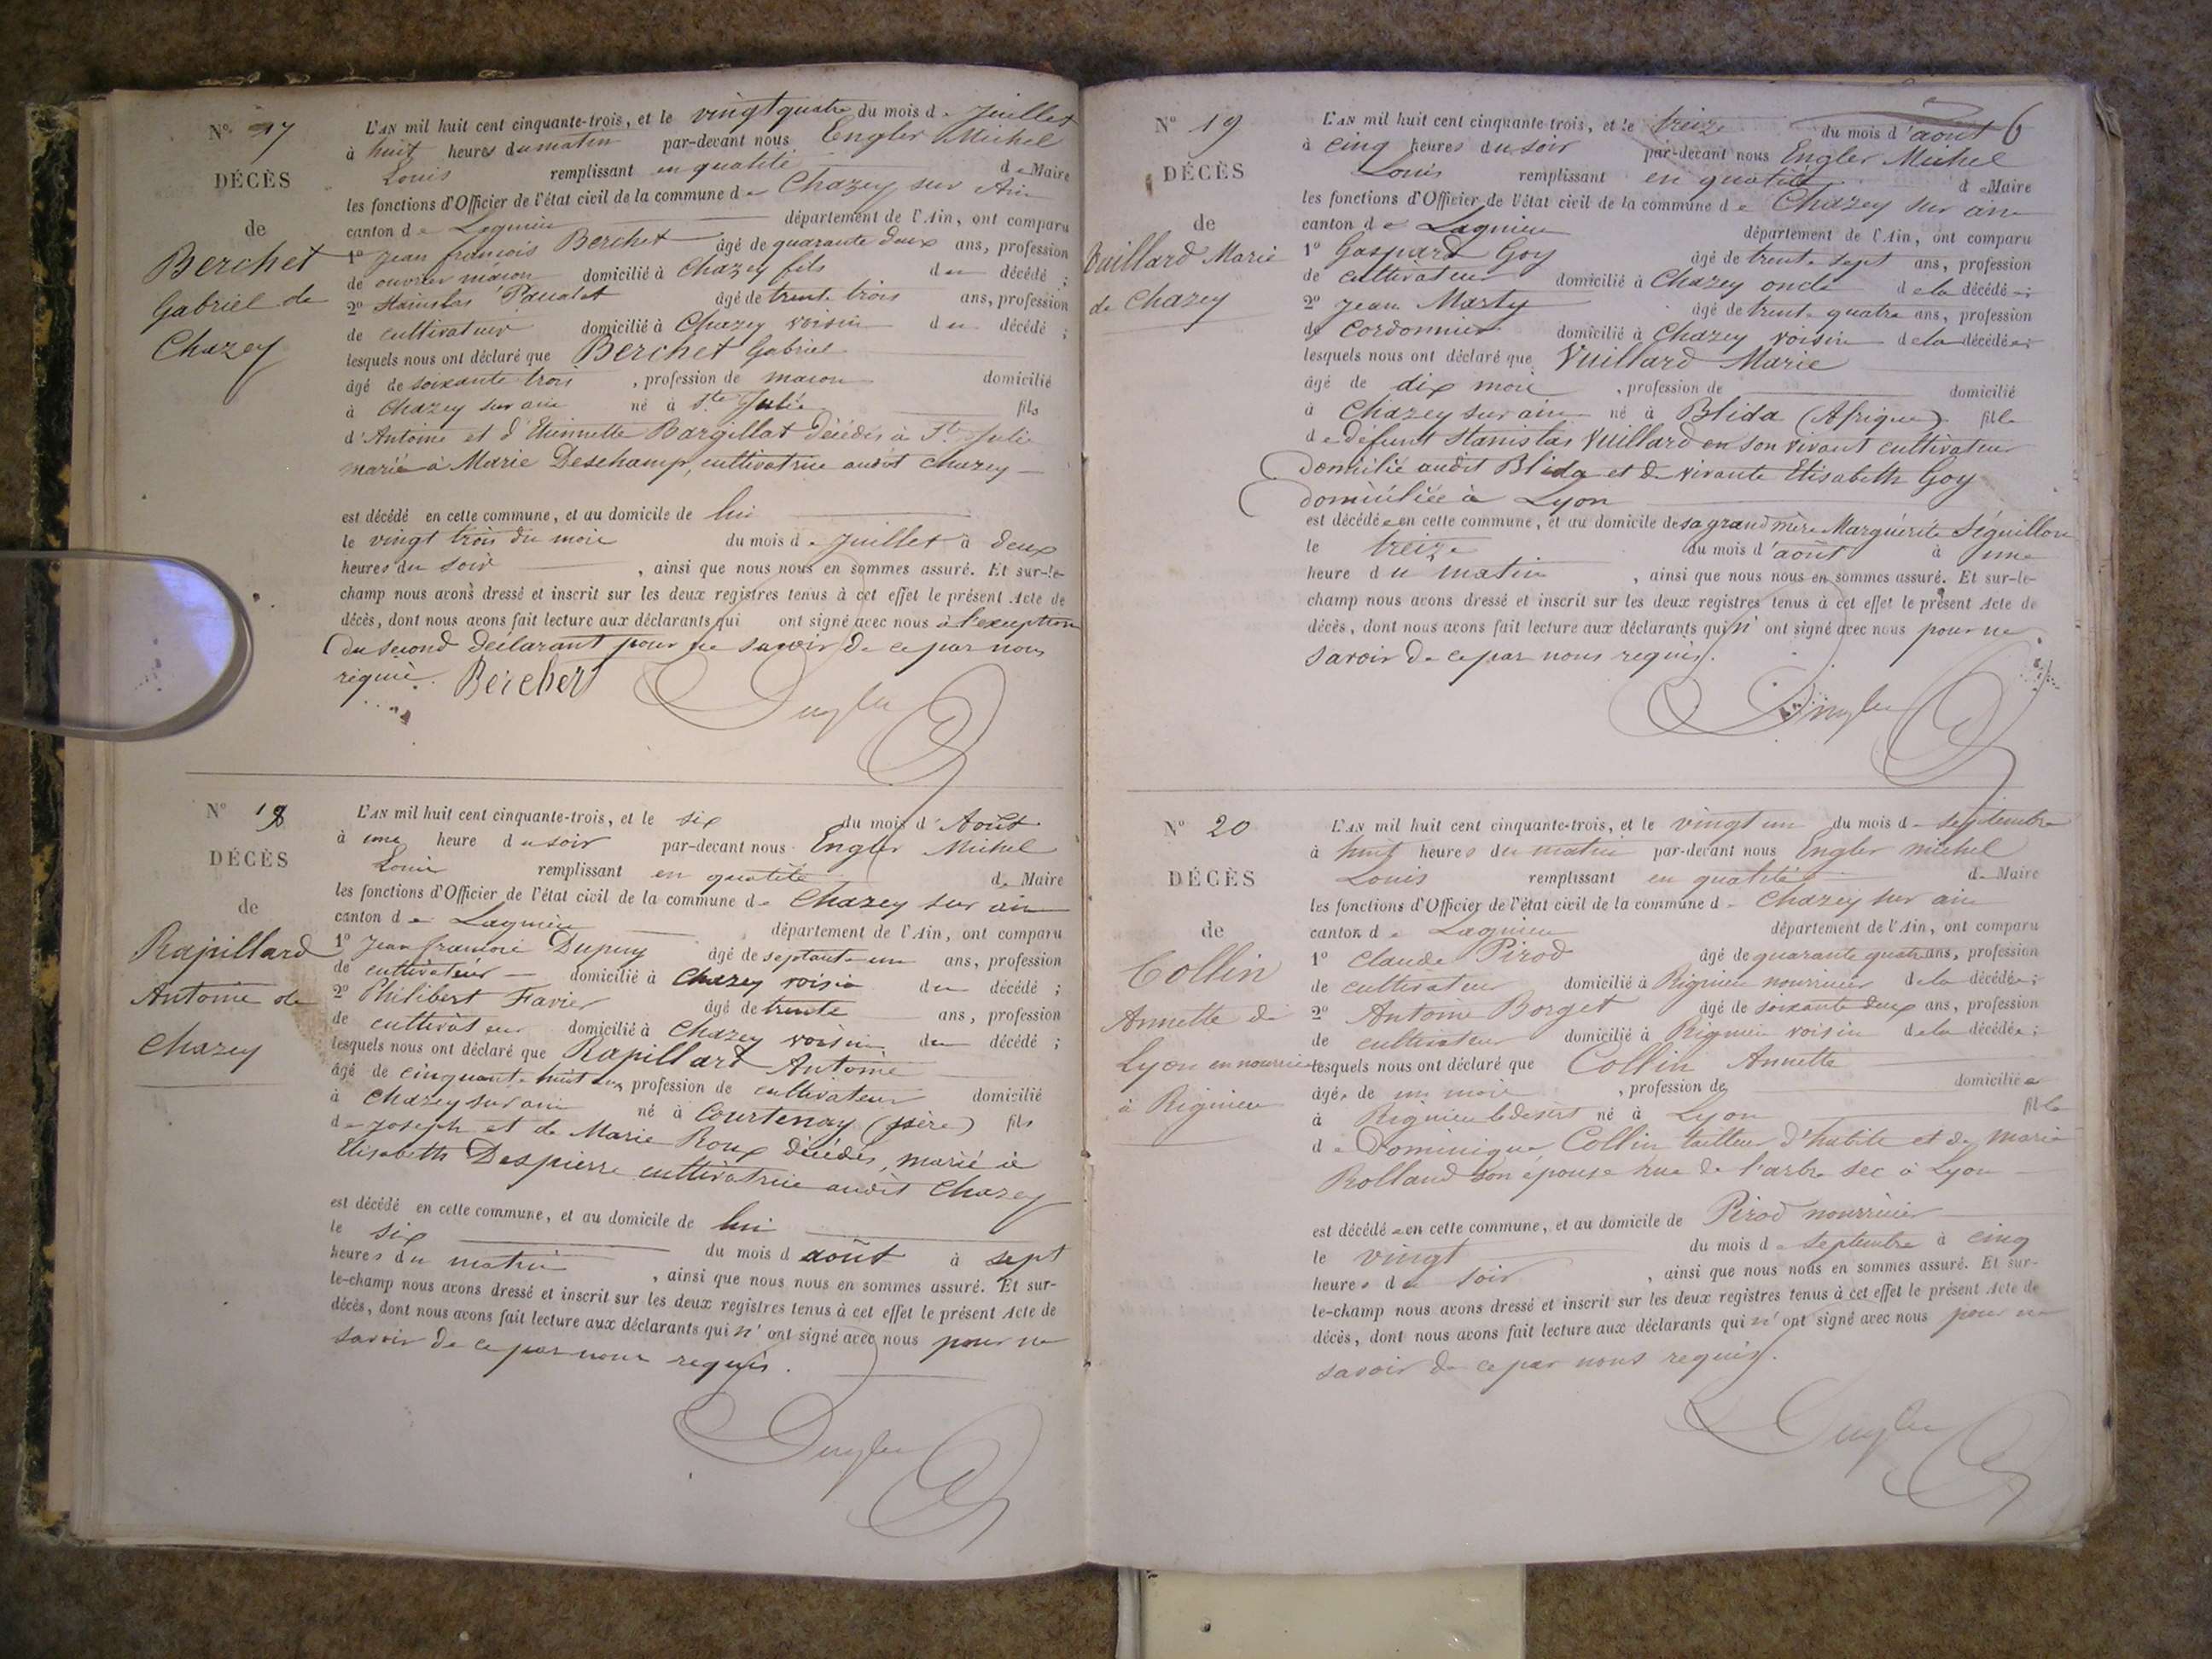 N° 17
DÉCÈS
de
Berchet
Gabriel de
Chazey
L'AN mil huit cent cinquante-trois, et le vingt quatre du mois de Juillet
à huit heures du matin par-devant nous Engler Michel
Louis remplissant en qualité de Maire
les fonctions d'Officier de l'état civil de la commune de Chazey sur Ain
canton de Lagnieu département de l'Ain, ont comparu
1° Jean francois Berchet âgé de quarante deux ans, profession
de ouvrier macon domicilié à Chazey fils du décédé ;
2° Stanislas âgé de trente trois ans, profession
de cultivateur domicilié à Chazey voisin du décédé ;
lesquels nous ont déclaré que Berchet Gabriel
âgé de soixante trois , profession de macon domicilié
à Chazey sur ain né à Ste Julie fils
d'Antoine et d'Etiennette Bargillat décédés à Ste Julie
marié à Marie Deschamp, cultivatrice audit Chazey
est décédé en cette commune, et au domicile de lui
le vingt trois du mois du mois de Juillet à deux
heures du soir , ainsi que nous nous en sommes assuré. Et sur-le-
champ nous avons dressé et inscrit sur les deux registres tenus à cet effet le présent Acte de
décès, dont nous avons fait lecture aux déclarants qui ont signé avec nous à l'exception
du second déclarant pour ne savoir de ce par nous
requis. Berchet Engler
N° 18
DÉCÈS
de
Rapillard
Antoine de
Chazey
L'AN mil huit cent cinquante-trois, et le six du mois d'Août
à une heure du soir par-devant nous Engler Michel
Louis remplissant en qualité de Maire
les fonctions d'Officier de l'état civil de la commune de Chazey sur ain
canton de Lagnieu département de l'Ain, ont comparu
1° Jean francois Dupuy âgé de septante un ans, profession
de cultivateur domicilié à Chazey voisin du décédé ;
2° Philibert Favier âgé de trente ans, profession
de cultivateur domicilié à Chazey voisin du décédé ;
lesquels nous ont déclaré que Rapillard Antoine
âgé de cinquante huit ans profession de cultivateur domicilié
à Chazey sur ain né à Courtenay (isère) fils
de Joseph et de Marie Roux décédés, marié à
Elisabeth Despierre cultivatrice audit Chazey
est décédé en cette commune, et au domicile de lui
le six du mois d août à sept
heures du matin , ainsi que nous nous en sommes assuré. Et sur-
le-champ nous avons dressé et inscrit sur les deux registres tenus à cet effet le présent Acte de
décès, dont nous avons fait lecture aux déclarants qui n' ont signé avec nous pour ne
savoir de ce par nous requis.
Engler
6
N° 19
DÉCÈS
de
Vuillard Marie
de Chazey
L'AN mil huit cent cinquante-trois, et le treize du mois d'août
à cinq heures du soir par-devant nous Engler Michel
Louis remplissant en qualité de Maire
les fonctions d'Officier de l'état civil de la commune de Chazey sur ain
canton de Lagnieu département de l'Ain, ont comparu
1° Gaspard Goy âgé de trente sept ans, profession
de cultivateur domicilié à Chazey oncle de la décédée ;
2° Jean Marty âgé de trente quatre ans, profession
de cordonnier domicilié à Chazey voisin de la décédée ;
lesquels nous ont déclaré que Vuillard Marie
âgé de dix mois , profession de domicilié
à Chazey sur ain né à Blida (Afrique) fille
de défunt Stanislas Vuillard en son vivant cultivateur
domicilié audit Blida et de vivante Elisabeth Goy
domiciliée à Lyon
est décédée en cette commune, et au domicile de sa grand mère Marguérite Séguillon
le treize du mois d'août à une
heure du matin , ainsi que nous nous en sommes assuré. Et sur-le-
champ nous avons dressé et inscrit sur les deux registres tenus à cet effet le présent Acte de
décès, dont nous avons fait lecture aux déclarants qui n' ont signé avec nous pour ne
savoir de ce par nous requis.
Engler
N° 20
DÉCÈS
de
Collin
Annette de
Lyon en nourrice
à Rignieu
L'AN mil huit cent cinquante-trois, et le vingt un du mois de septembre
à huit heures du matin par-devant nous Engler michel
Louis remplissant en qualité de Maire
les fonctions d'Officier de l'état civil de la commune d Chazey sur ain
canton de Lagnieu département de l'Ain, ont comparu
1° Claude Pirod âgé de quarante quatre ans, profession
de cultivateur domicilié à Rignieu nourricier de la décédée ;
2° Antoine Borget âgé de soixante deux ans, profession
de cultivateur domicilié à Rignieu voisin de la décédée ;
lesquels nous ont déclaré que Collin Annette
âgée de un mois , profession de domiciliée
à Rignieu le desert né à Lyon fille
de Dominique Collin tailleur d'habits et de marie
Rolland son épouse rue de l'arbre sec à Lyon
est décédée en cette commune, et au domicile de Pirod nourricier
le vingt du mois de septembre à cinq
heures du soir , ainsi que nous nous en sommes assuré. Et sur-
le-champ nous avons dressé et inscrit sur les deux registres tenus à cet effet le présent Acte de
décès, dont nous avons fait lecture aux déclarants qui n' ont signé avec nous pour ne
savoir de ce par nous requis.
Engler